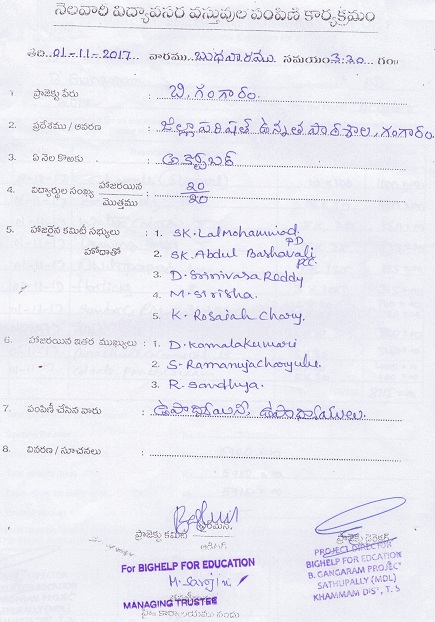 నెలవారీ విద్యావసర వస్తువుల పంపిణీ కార్యక్రమం
తేది 01-11-2017 వారము బుధవారము సమయం 3:30 గం॥
1. ప్రాజెక్టు పేరు : బి.గంగారం.
2. ప్రదేశము / ఆవరణ : జిల్లా పరిషత్ ఉన్నత పాఠశాల, గంగారం.
3. ఏ నెల కొఱకు : అక్టోబర్
4. విద్యార్థుల సంఖ్య హాజరయిన / మొత్తము : 20/20
5. హాజరైన కమిటీ సభ్యులు : 1. SK. Lalmohammad PD
హోదాతో 2. SK. Abdul Bashavali P.C.
3. D. Srinivasa Reddy
4. M. Sirisha.
5. K. Rosaiah Chary.
6. హాజరయిన ఇతర ముఖ్యులు : 1. D. Kamalakumari
2. S. Ramanujacharyulu.
3. R. Sandhya.
7. పంపిణీ చేసిన వారు : ఉపాధ్యాయిని, ఉపాధ్యాయులు.
8. వివరణ / సూచనలు :
ప్రాజెక్టు కమిటీ
ప్రాజెక్టు డైరెక్టర్
PROJECT DIRECTOR
BIGHELP FOR EDCATION
B. GANGARAM PROJECT
SATHUPALLY (MDL)
KHAMMAM DIST, T. S
For BIGHELP FOR EDUCATION
M. Sarojini
MANAGING TRUSTEE